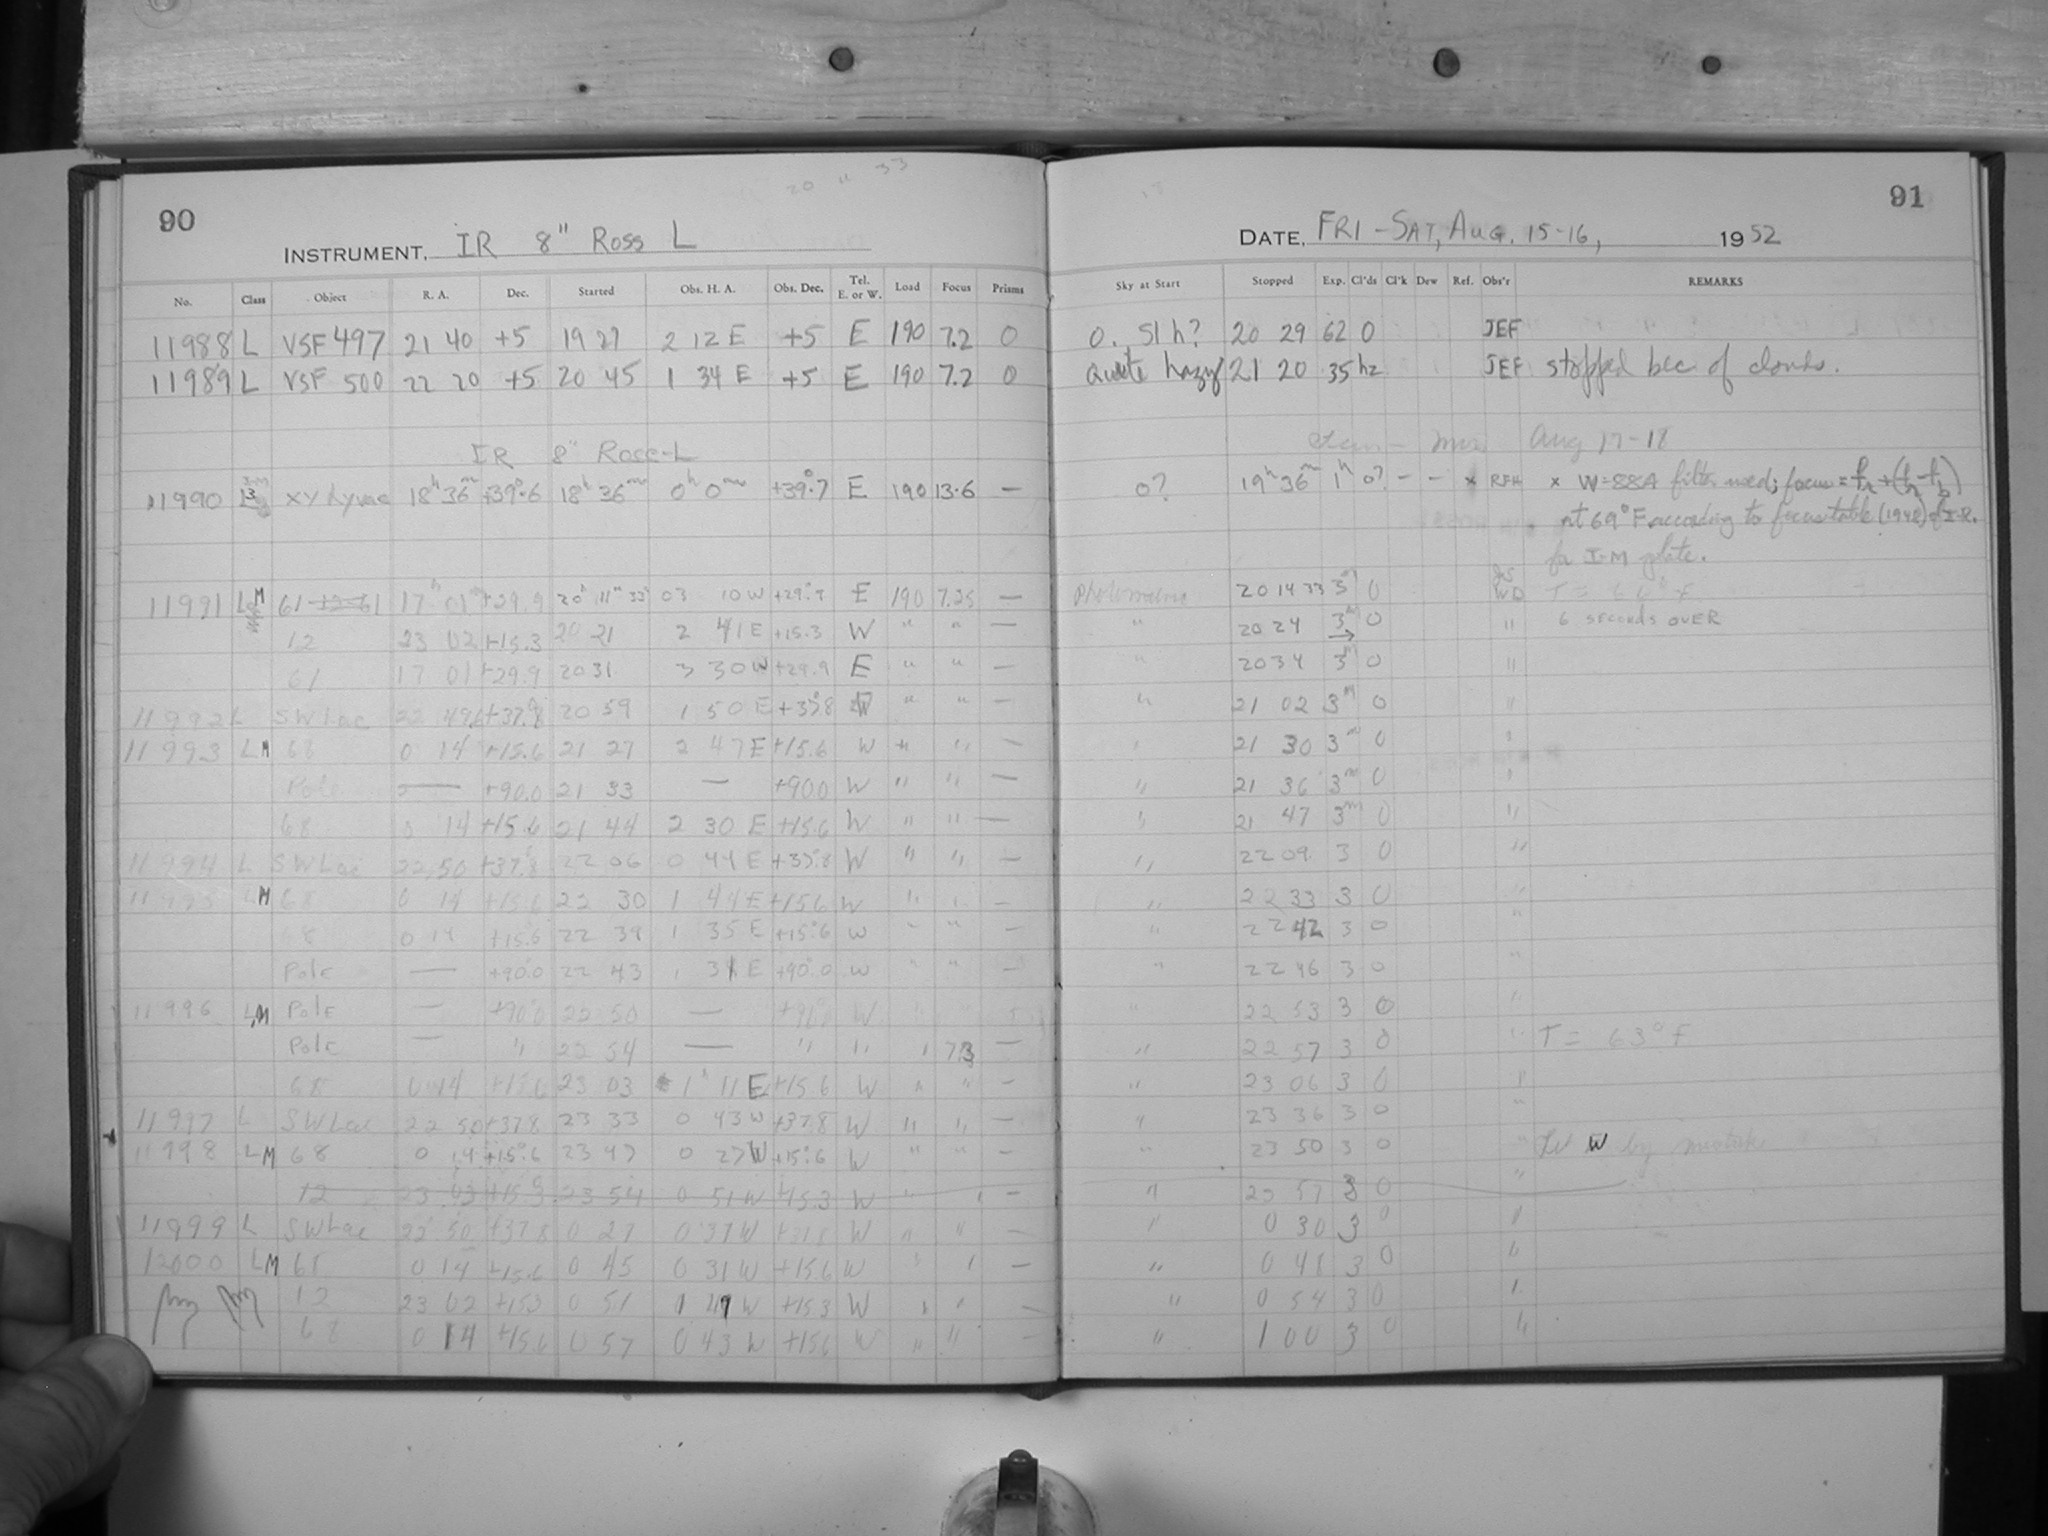 90
INSTRUMENT, IR 8" Ross L
No. Class Object R. A. Dec. Started Obs. H. A. Obs. Dec. Tel. E. or W. Load Focus Prisms
11988 L VSF 497 21 40 +5 19 27 2 12 E +5 E 190 7.2 0
11989 L VSF 500 22 20 +5 20 45 1 34 E +5 E 190 7.2 0
IR 8" Ross-L
11990 XY Lyrae 18h 36m +39°.6 18h 36m 0h 0m +39°.7 E 190 13.6 —
11991 LM 61 17h 01m +29.9 20h 11m 33s 03 10 W +29°.9 E 190 7.25 —
12 23 02 +15.3 20 21 2 41 E +15.3 W " " —
61 17 01 +29.9 20 31 3 30 W +29.9 E " " —
11992 L SW Lac 22 49.6 +37.8 20 59 1 50 E +37.8 W " " —
11993 LM 68 0 14 +15.6 21 27 2 47 E +15.6 W " " —
Pole — +90.0 21 33 — +90.0 W " " —
68 0 14 +15.6 21 44 2 30 E +15.6 W " " —
11994 L SW Lac 22 50 +37.8 22 06 0 44 E +37.8 W " " —
11995 LM 68 0 14 +15.6 22 30 1 44 E +15.6 W " " —
68 0 14 +15.6 22 39 1 35 E +15.6 W " " —
Pole — +90.0 22 43 1 31 E +90.0 W " " —
11996 LM Pole — +90.0 22 50 — +90° W " " —
Pole — " 22 54 — " " " 7.3 —
68 0 14 +15.6 23 03 1h 11 E +15.6 W " " —
11997 L SW Lac 22 50 +37.8 23 33 0 43 W +37.8 W " " —
11998 LM 68 0 14 +15.6 23 47 0 27 W +15.6 W " " —
12 23 03 +15.3 23 54 0 51 W +15.3 W " " —
11999 L SW Lac 22 50 +37.8 0 27 0 37 W +37.8 W " " —
12000 LM 68 0 14 +15.6 0 45 0 31 W +15.6 W " " —
12 23 02 +15.3 0 51 1 49 W +15.3 W " " —
68 0 14 +15.6 0 57 0 43 W +15.6 W " " —
91
DATE, FRI - SAT, AUG. 15-16, 1952
Sky at Start Stopped Exp. Cl'ds Cl'k Dew Ref. Obs'r REMARKS
0. Sl h? 20 29 62 0 JEF
Quite hazy 21 20 35 hz JEF stopped bec of clouds.
Sun - Mon Aug 17-18
0? 19h 36m 1h 0? — — x RFH x W-88A filter used; focus =
at 69° F according to focus table (1948) of I.R.
for I-M plate.
Photometric 20 14 33 3m 0 JS WD T = 66° F
" 20 24 3m 0 " 6 SECONDS OVER
" 20 34 3m 0 "
" 21 02 3m 0 "
" 21 30 3m 0 "
" 21 36 3m 0 "
" 21 47 3m 0 "
" 22 09 3 0 "
" 22 33 3 0 "
" 22 42 3 0 "
" 22 46 3 0 "
" 22 53 3 0 "
" 22 57 3 0 " T = 63° F
" 23 06 3 0 "
" 23 36 3 0 "
" 23 50 3 0 " W by mistake
" 23 57 3 0 "
" 0 30 3 0 "
" 0 48 3 0 "
" 0 54 3 0 "
" 1 00 3 0 "